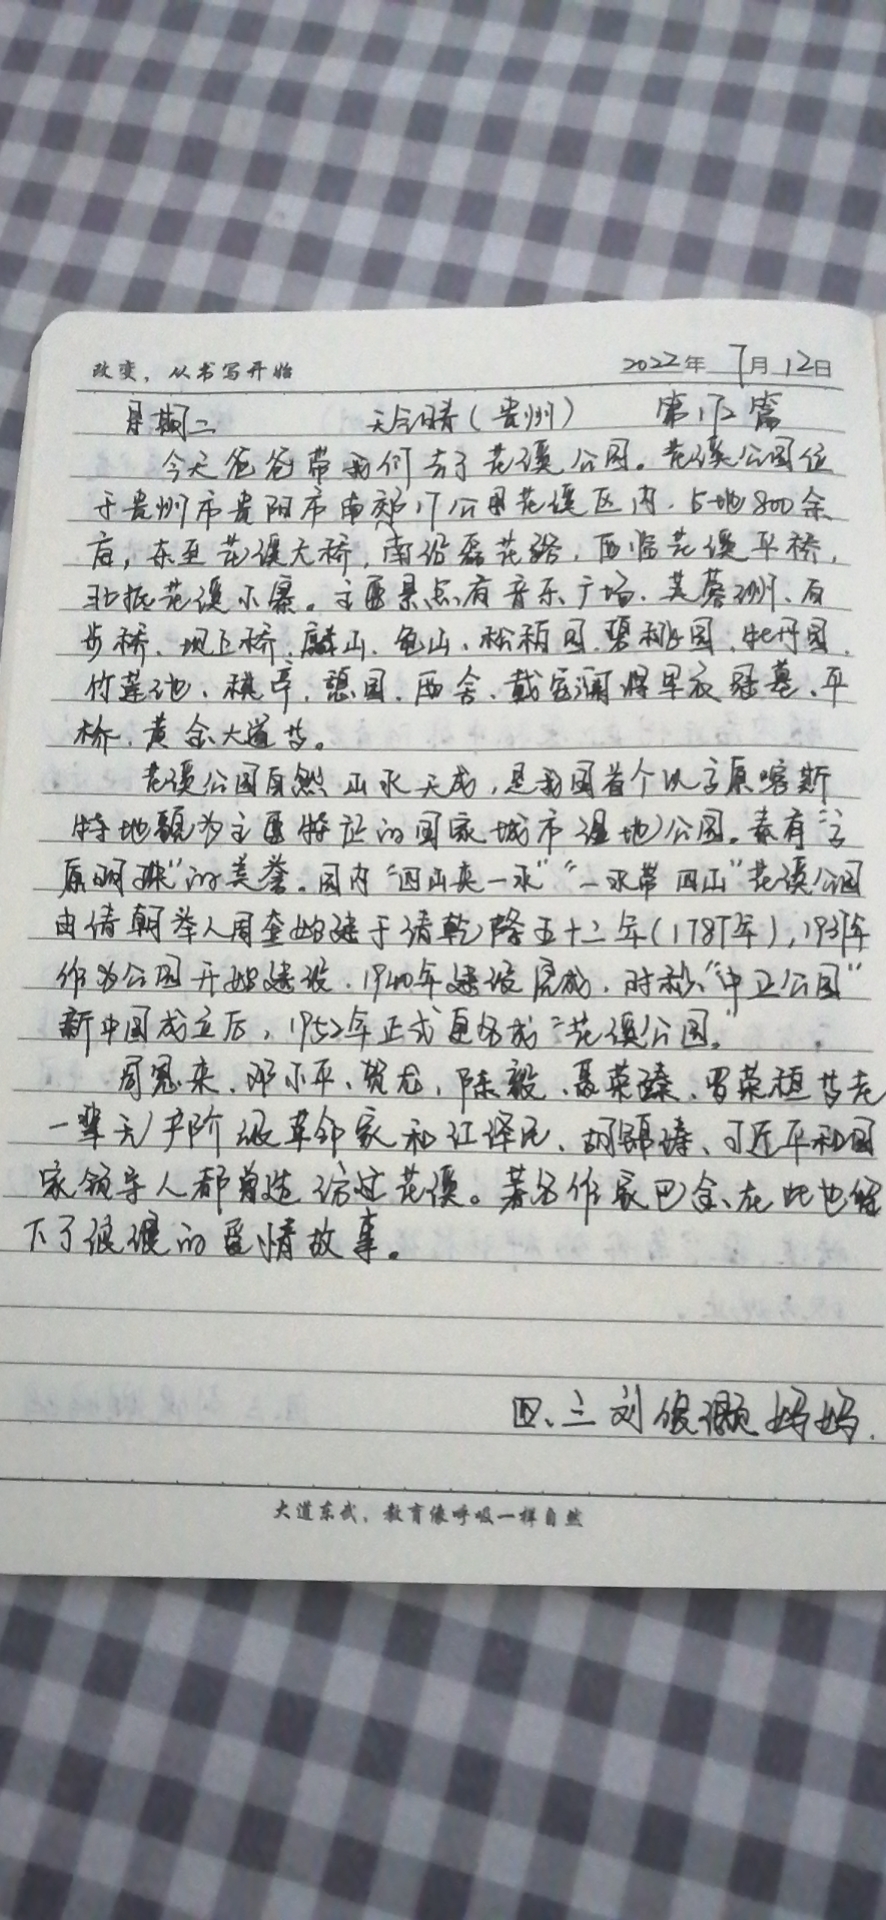 改变，从书写开始
2022年 7月 12日
星期二 天气晴（贵州） 第172篇
今天爸爸带我们去了花溪公园。花溪公园位
于贵州市贵阳市南郊17公里花溪区内，占地800余
亩，东至花溪大桥，南沿磊花路，西临花溪平桥，
北抵花溪小寨。主要景点有音乐广场、芙蓉洲、百
步桥、坝上桥、麟山、龟山、松柏园、碧桃园、牡丹园、
竹莲池、棋亭、憩园、西舍、戴安澜将军衣冠墓、平
桥、黄金大道等。
花溪公园自然山水天成，是我国首个以高原喀斯
特地貌为主要特征的国家城市湿地公园。素有“高
原明珠”的美誉。园内“四山夹一水”“一水带四山”花溪公园
由清朝举人周奎始建于清乾隆五十二年（1787年），1937年
作为公园开始建设，1940年建设完成，时称“中正公园”
新中国成立后，1952年正式更名成“花溪公园。”
周恩来、邓小平、贺龙、陈毅、聂荣臻、罗荣桓等老
一辈无产阶级革命家和江泽民、胡锦涛、习近平和国
家领导人都曾造访过花溪。著名作家巴金在此也留
下了浪漫的爱情故事。
四、三 刘俊灏妈妈.
大道东武，教育像呼吸一样自然